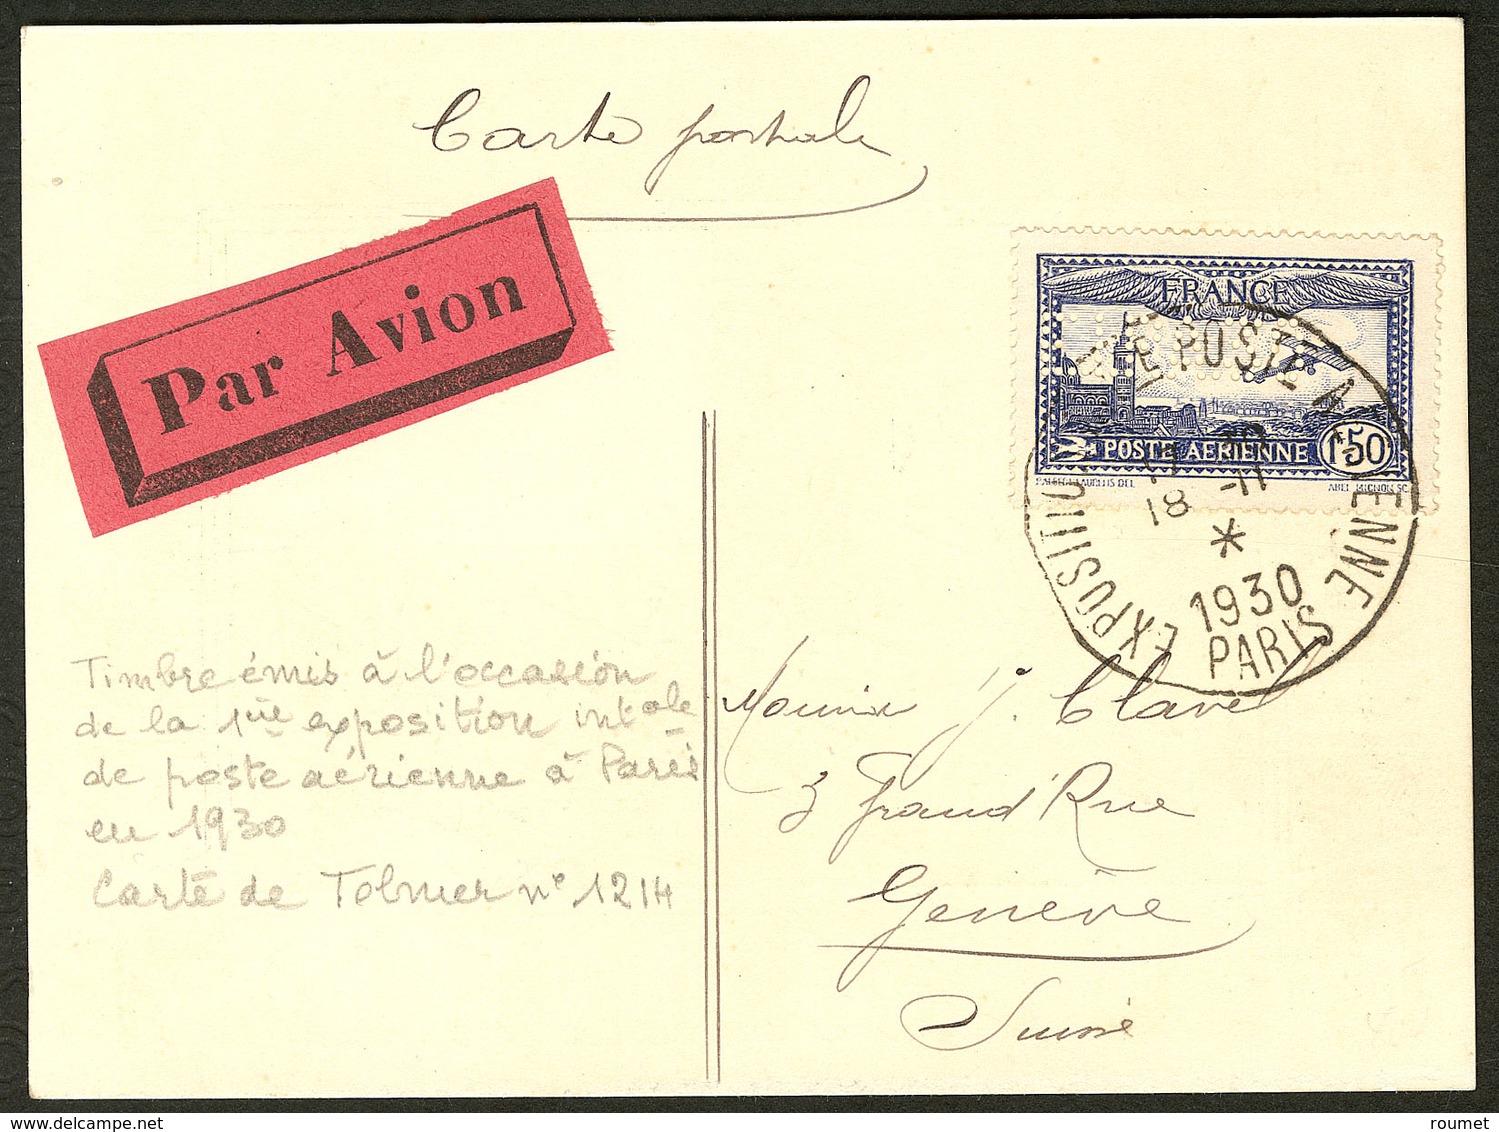 Carte postale
Par Avion
FRANCE
POSTE AERIENNE
1F50
EXPOSITION DE POSTE AERIENNE
17 30
18 -11
*
1930
PARIS
Timbre émis à l'occasion
de la 1ière exposition intale
de poste aérienne à Paris
en 1930
Carte de Tolmer n° 1214
Monsieur J. Clavel
3 Grand Rue
Genève
Suisse
www.delcampe.net
roumet